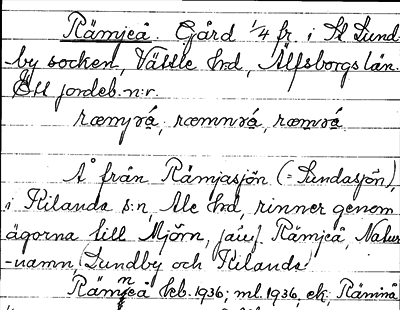 Rämjeå. Gård 1/4 fr. i St Lund-
by socken, Vättle hd, Älfsborgs län.
Ett jordeb.n:r.
ræmjrå, ræmnrå, ræmrå
Å från Rämjasjön (= Lundasjön),
i Kilanda s:n, Ale hd, rinner genom
ägorna till Mjörn, jäuf. Rämjeå, Natur-
-namn, Lundby och Kilanda
Rämjeå keb. 1936; ml. 1936, ek; Rämnå